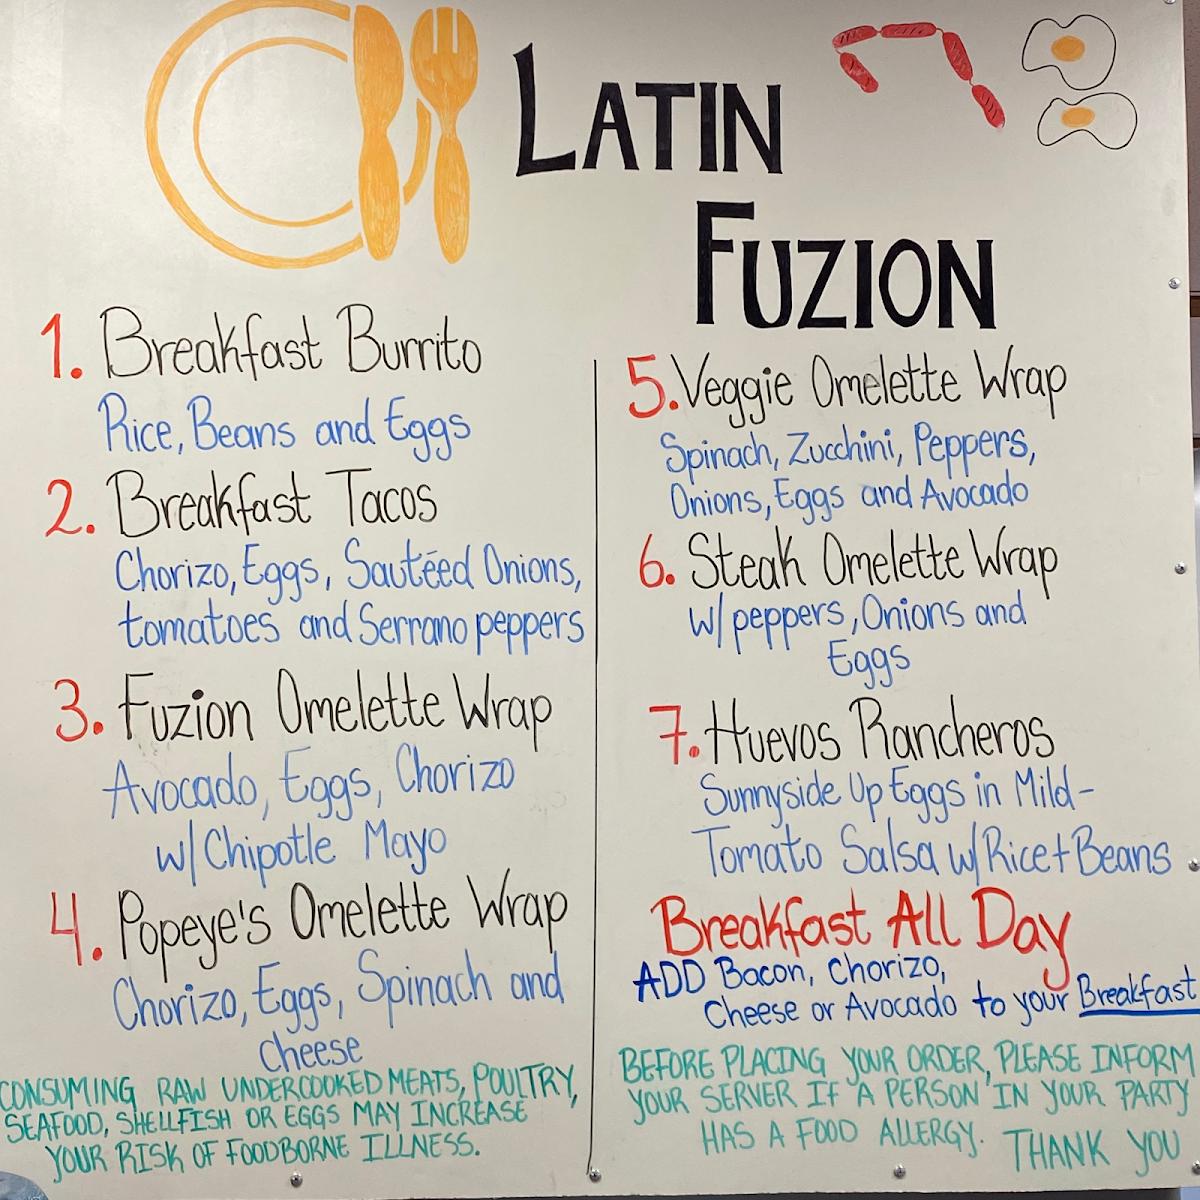 LATIN
FUZION
1. Breakfast Burrito
Rice, Beans and Eggs
2. Breakfast Tacos
Chorizo, Eggs, Sautéed Onions,
tomatoes and Serrano peppers
3. Fuzion Omelette Wrap
Avocado, Eggs, Chorizo
w/ Chipotle Mayo
4. Popeye's Omelette Wrap
Chorizo, Eggs, Spinach and
Cheese
CONSUMING RAW UNDERCOOKED MEATS, POULTRY,
SEAFOOD, SHELLFISH OR EGGS MAY INCREASE
YOUR RISK OF FOODBORNE ILLNESS.
5. Veggie Omelette Wrap
Spinach, Zucchini, Peppers,
Onions, Eggs and Avocado
6. Steak Omelette Wrap
w/ peppers, Onions and
Eggs
7. Huevos Rancheros
Sunnyside Up Eggs in Mild-
Tomato Salsa w/ Rice + Beans
Breakfast All Day
ADD Bacon, Chorizo,
Cheese or Avocado to your Breakfast
BEFORE PLACING YOUR ORDER, PLEASE INFORM
YOUR SERVER IF A PERSON IN YOUR PARTY
HAS A FOOD ALLERGY. THANK YOU